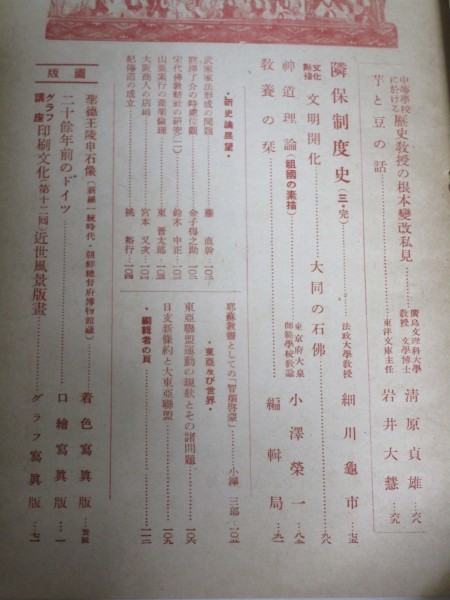 中等學校に於ける 歷史教授の根本變改私見 廣島文理科大學教授 文學博士 淸原貞雄…六八
芋と豆の話 東洋文庫主任 岩井大慧…六九
隣保制度史（三・完） 法政大學教授 細川龜市…七五
文化點描 文明開化 大同の石佛…九八
神道理論（祖國の素描） 東京府大泉師範學校教諭 小澤榮一…八二
教養の栞 編輯局…九一
・新史論展望・
武家家法形成の問題 藤直幹…一〇二
宋代佛教結社の研究（二） 鈴木中正…一〇三
山鹿素行の產業倫理 東晉太郎
大阪商人の店締 宮本又次…一〇三
紀海道の成立 桃裕行…一〇四
耶蘇教書としての「智環啓蒙」 小澤三郎…一〇五
・東亞及び世界・
東亞聯盟運動の現狀とその諸問題 一〇六
日支新條約と大東亞聯盟 一〇九
・編輯者の頁 一一二
圖版
聖德王陵申石像（新羅一統時代・朝鮮總督府博物館藏） 着色寫眞版
二十餘年前のドイツ 口繪寫眞版…一
グラフ講座 印刷文化（第十二囘）近世風景版畫 グラフ寫眞版…七一